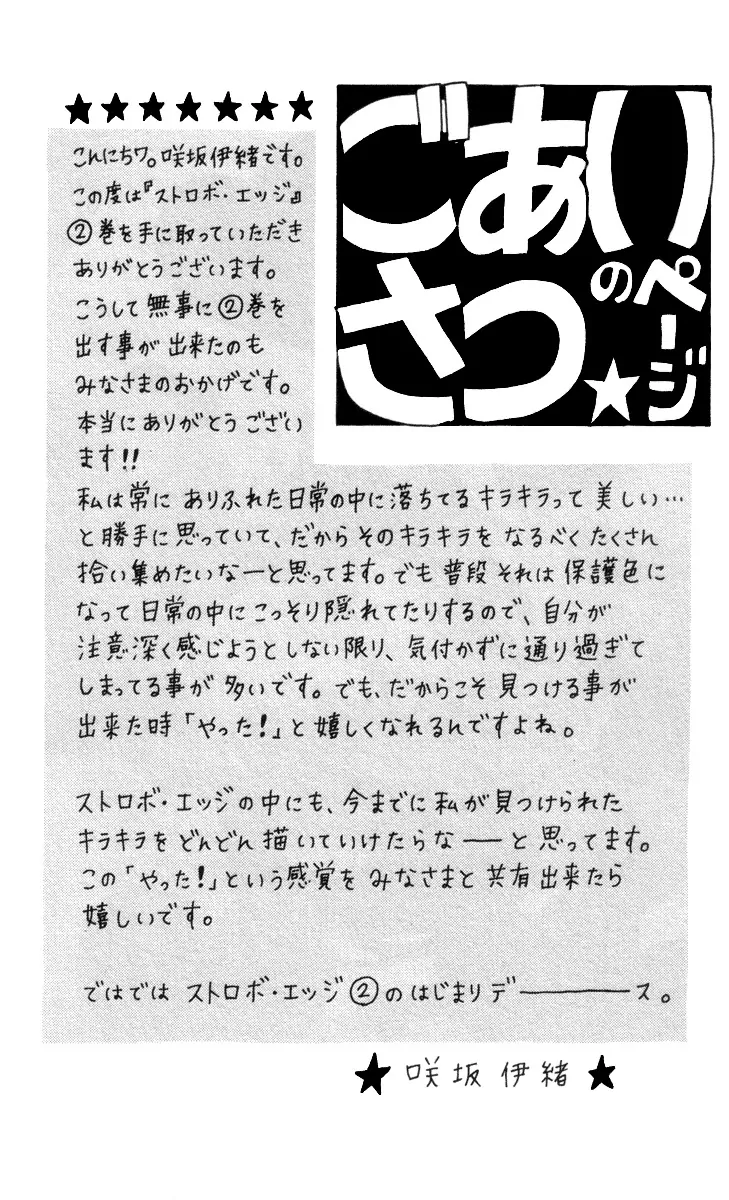 ごあいさつのページ
こんにちワ。咲坂伊緒です。
この度は『ストロボ・エッジ』
②巻を手に取っていただき
ありがとうございます。
こうして無事に②巻を
出す事が出来たのも
みなさまのおかげです。
本当にありがとうござい
ます!!
私は常にありふれた日常の中に落ちてるキラキラって美しい…
と勝手に思っていて、だからそのキラキラをなるべくたくさん
拾い集めたいなーと思ってます。でも普段それは保護色に
なって日常の中にこっそり隠れてたりするので、自分が
注意深く感じようとしない限り、気付かずに通り過ぎて
しまってる事が多いです。でも、だからこそ見つける事が
出来た時「やった!」と嬉しくなれるんですよね。
ストロボ・エッジの中にも、今までに私が見つけられた
キラキラをどんどん描いていけたらな──と思ってます。
この「やった!」という感覚をみなさまと共有出来たら
嬉しいです。
ではではストロボ・エッジ②のはじまりデ─────ス。
★咲坂伊緒★